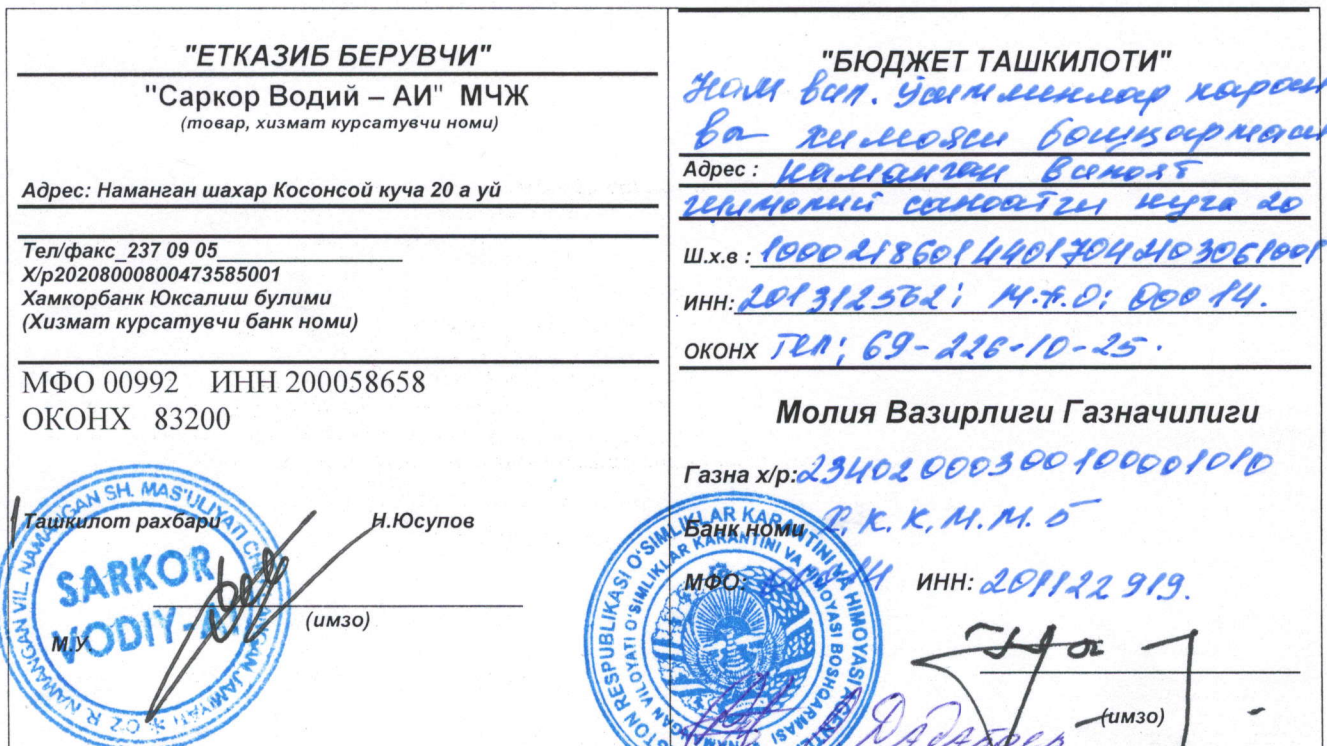 "ЕТКАЗИБ БЕРУВЧИ"
"Саркор Водий – АИ" МЧЖ
(товар, хизмат курсатувчи номи)
Адрес: Наманган шахар Косонсой куча 20 а уй
Тел/факс_237 09 05
Х/р20208000800473585001
Хамкорбанк Юксалиш булими
(Хизмат курсатувчи банк номи)
МФО 00992 ИНН 200058658
ОКОНХ 83200
Ташкилот рахбари Н.Юсупов
(имзо)
М.У.
SARKOR
VODIY-AI
NAMANGAN VIL. NAMANGAN SH. MAS'ULIYATI
"БЮДЖЕТ ТАШКИЛОТИ"
Нам вил. ўсимликлар каран
ва химояси бошқармаси
Адрес : Наманган вилоят
саноатчи куча 20
Ш.х.в : 100021860144017042103061001
ИНН: 201312562; М.Ф.О: 00014.
ОКОНХ Тел; 69-226-10-25.
Молия Вазирлиги Газначилиги
Газна х/р: 23402000300100001010
Банк номи Р.К.К.М.М.Б
МФО: ИНН: 201122919.
(имзо)
O'SIMLIKLAR KARANTINI VA HIMOYASI
O'SIMLIKLAR KARANTINI VA HIMOYASI BOSHQARMASI